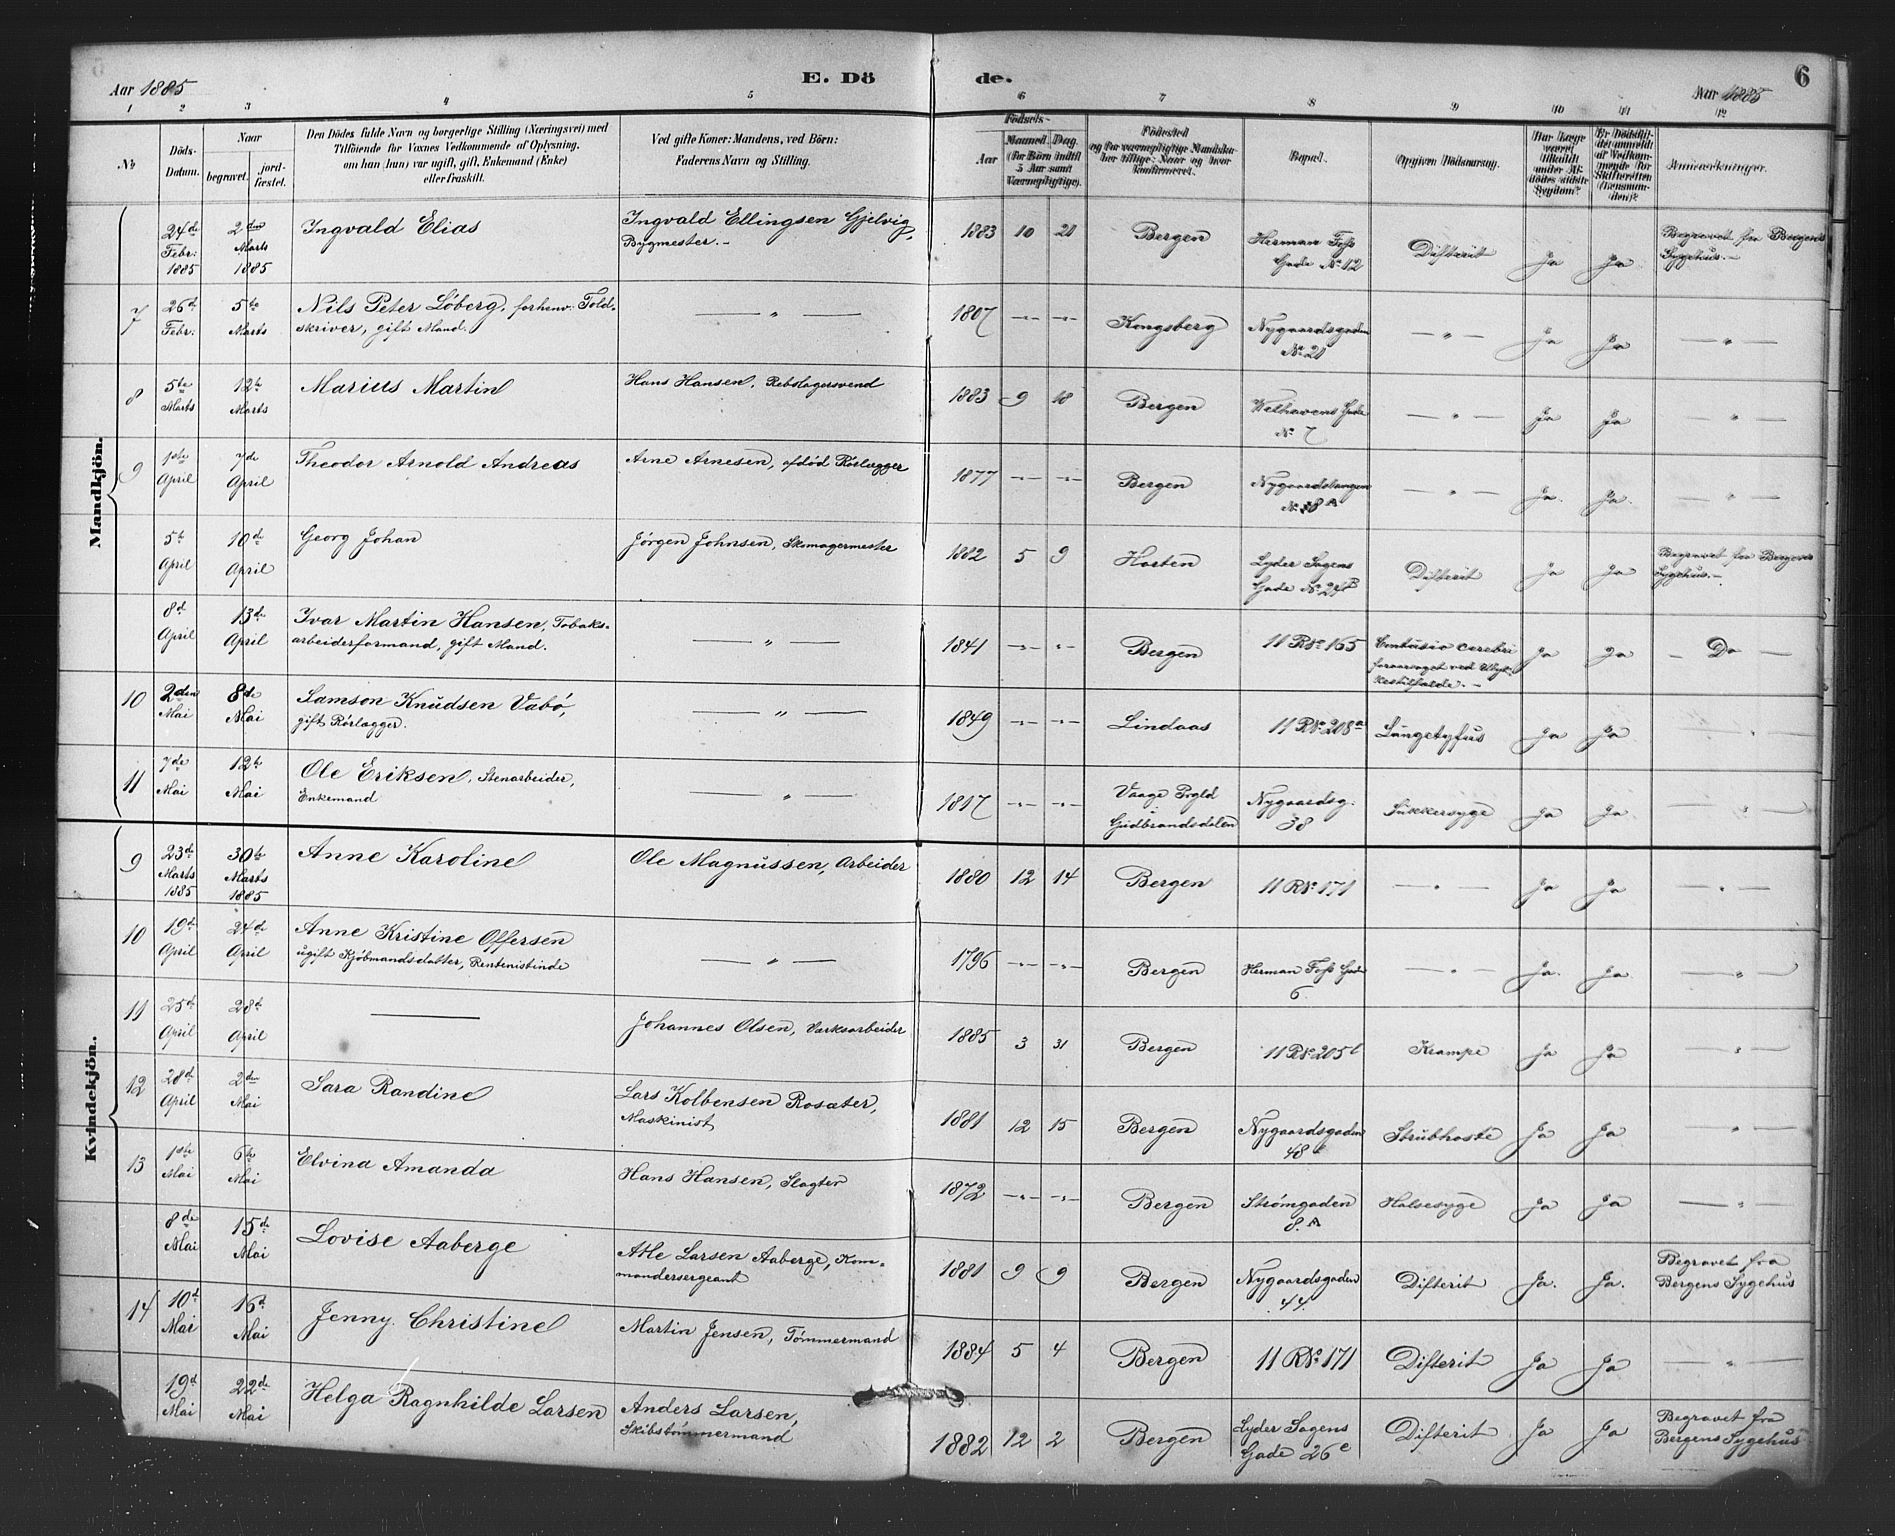 Aar 1885
E. Dö
de.
6
Aar 1885
1
2
3
4
5
6
7
8
9
10
11
12
№
Döds-
Datum.
Naar
begravet.
jord-
fæstet.
Den Dödes fulde Navn og borgerlige Stilling (Næringsvei) med
Tilföiende for Voxnes Vedkommende af Oplysning,
om han (hun) var ugift, gift, Enkemand (Enke)
eller fraskilt.
Ved gifte Koner: Mandens, ved Börn:
Faderens Navn og Stilling.
Födsels-
Aar
Maaned
Dag
(for Börn indtil
5 Aar samt
Værnepligtige).
Födested
og for værnepligtige Mandskaber tillige: Naar og hvor
konfirmeret.
Bopæl.
Opgiven Dödsaarsag.
Har Læge
været
tilkaldt
under Af-
dödes sidste
Sygdom?
Er Dödsfal-
det anmeldt
af Vedkom-
mende for
Skifteretten
(Lensman-
den)?
Anmærkninger.
Mandkjön.
24de Febr: 1885
2den Marts 1885
Ingvald Elias
Ingvald Ellingsen Gjelvig,
Bygmester.-
1883 10 21
Bergen
Herman Foss
Gade № 12
Difterit
Ja
Ja
Begravet fra Bergens
Sygehus.-
7
26d Febr:
5te Marts
Nils Peter Löberg, forhenv. Told-
skriver, gift Mand.
— " —
1807 -"- -"-
Kongsberg
Nygaardsgaden
№ 21
— " —
Ja
Ja
— " —
8
5te Marts
12te Marts
Marius Martin
Hans Hansen, Rebslagersvend
1883 9 18
Bergen
Welhavens Gade
№ 7
— " —
Ja
Ja
— " —
9
1ste April
7de April
Theodor Arnold Andreas
Arne Arnesen, afdöd Rörlægger
1877 -"- -"-
Bergen
Nygaardstangen
№ 18 A
— " —
Ja.
Ja.
— " —
5te April
10de April
Georg Johan
Jörgen Johnsen, Skomagermester
1882 5 9
Horten
Lyder Sagens
Gade № 24B
Difterit
Ja
Ja
Begravet fra Bergens
Sygehus.-
8d April
13de April
Ivar Martin Hansen, Tobaks-
arbeiderformand, gift Mand.
— " —
1841 -"- -"-
Bergen
11 R № 165
Contusio cerebri
foraarsaget ved Ulyk-
kestilfælde.-
Ja
Ja
- Do -
10
2den Mai
8de Mai
Samson Knudsen Vabö,
gift Rörlægger.
— " —
1849 -"- -"-
Lindaas
11 R № 208a
Lungetyfus
Ja
Ja
"
11
7de Mai
12te Mai
Ole Eriksen, Stenarbeider,
Enkemand
— " —
1817 -"- -"-
Vaage Prgld
i
Gudbrandsdalen
Nygaardsg.
38
Sukkersyge
Ja
Ja
— " —
Kvindekjön.
9
23de Marts 1885
30te Marts 1885
Anne Karoline
Ole Magnussen, Arbeider
1880 12 14
Bergen
11 R № 171
— " —
Ja
Ja
— " —
10
19de April
24de April
Anne Kristine Offersen
ugift Kjöbmandsdatter, Rentenistinde
— " —
1796 -"- -"-
Bergen
Herman Foss Gade
6.
— " —
Ja.
Ja.
— " —
11
25de April
28de April
—
Johannes Olsen, Værksarbeider
1885 3 31
Bergen
11 R № 205b
Krampe
Ja
Ja
"
12
28de April
2den Mai
Sara Randine
Lars Kolbensen Rosæter,
Maskinist
1881 12 15
Bergen
Nygaardsgaden
48
Strubhoste
Ja
Ja
— " —
13
1ste Mai
6te Mai
Elvina Amanda
Hans Hansen, Slagter
1872 -"- -"-
Bergen
Strömgaden
8.A
Halsesyge
Ja
Ja
— " —
8de Mai
15de Mai
Lovise Aaberge
Atle Larsen Aaberge, Kom-
mandersergeant
1881 9 9
Bergen
Nygaardsgaden
44
Difterit
Ja.
Ja.
Begravet fra
Bergens Sygehus
14
10de Mai
16d Mai
Jenny Christine
Martin Jensen, Tömmermand
1884 5 4
Bergen
11 R № 171
Difterit
Ja
Ja
— " —
19d Mai
22de Mai
Helga Ragnhilde Larsen
Anders Larsen,
Skibstömmermand
1882 12 2
Bergen
Lyder Sagens
Gade 26c
Difterit
Ja
Ja
Begravet fra
Bergens Sygehus